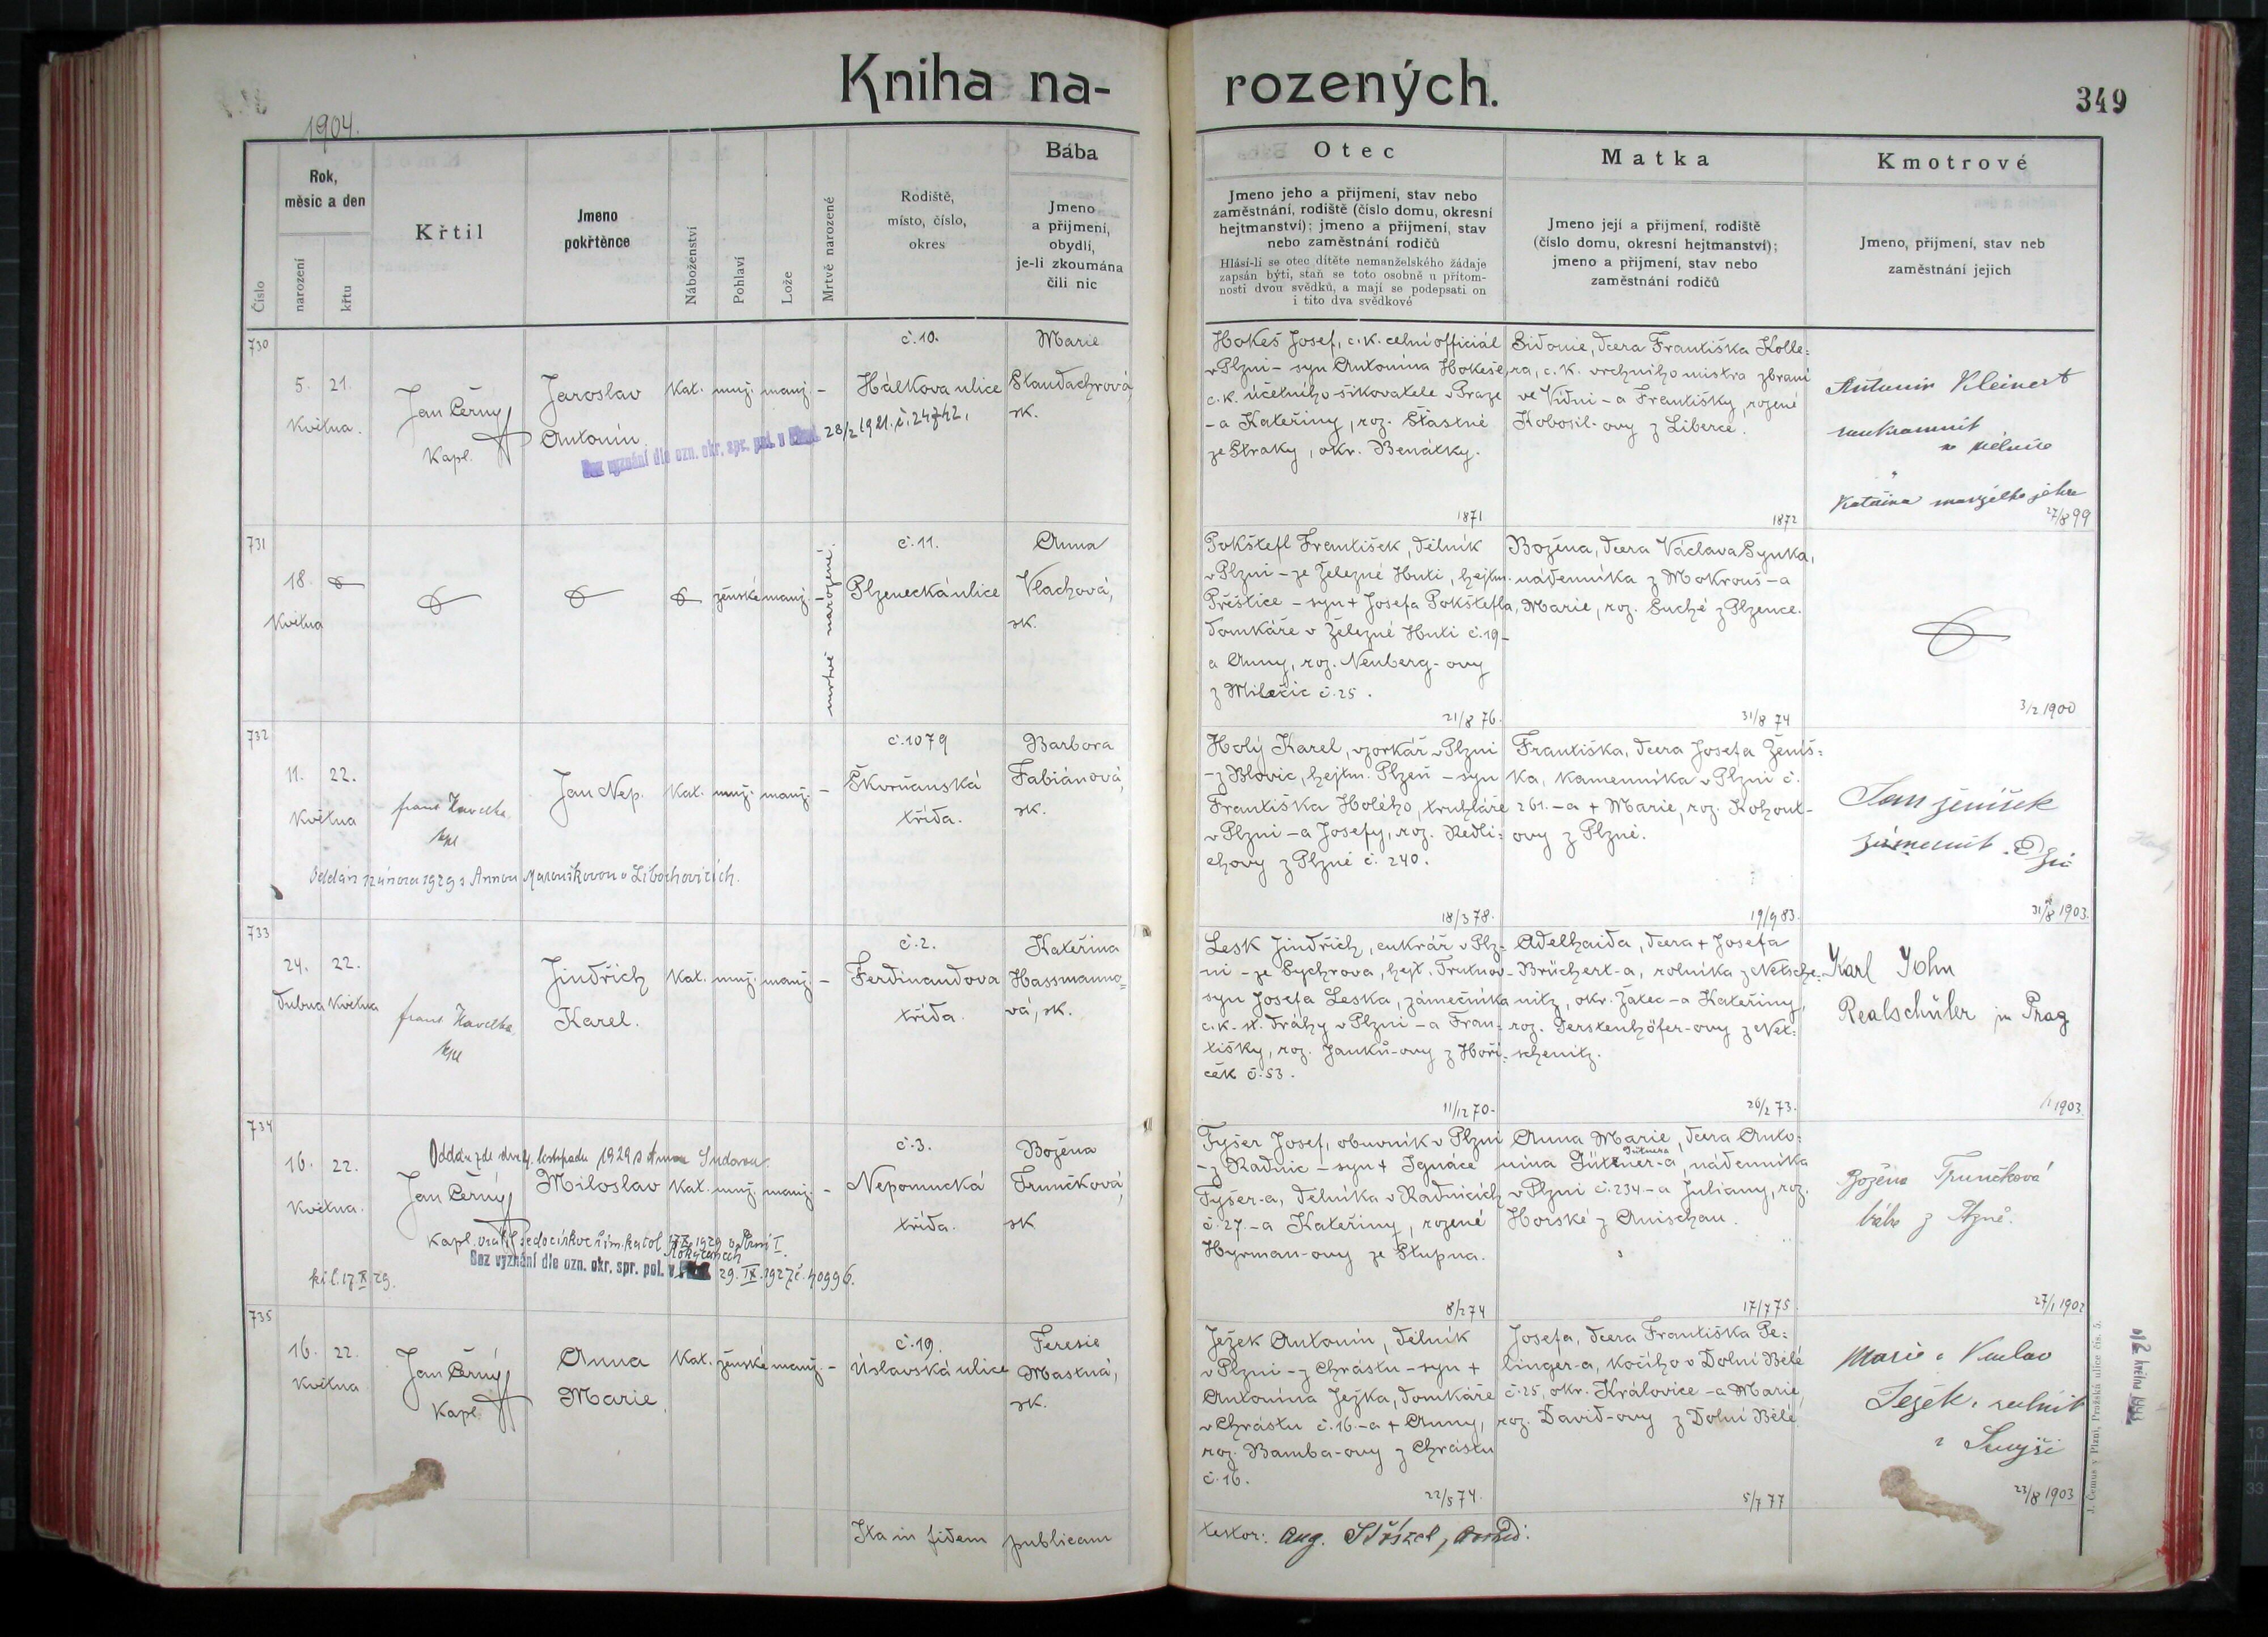 Kniha na-
rozených.
349
1904.
Rok,
měsíc a den
Číslo
narození
křtu
Křtil
Jmeno
pokřtěnce
Náboženství
Pohlaví
Lože
Mrtvě narozené
Rodiště,
místo, číslo,
okres
Bába
Jmeno
a přijmení,
obydlí,
je-li zkoumána
čili nic
Otec
Jmeno jeho a přijmení, stav nebo
zaměstnání, rodiště (číslo domu, okresní
hejtmanství); jmeno a přijmení, stav
nebo zaměstnání rodičů
Hlásí-li se otec dítěte nemanželského žádaje
zapsán býti, staň se toto osobně u přítom-
nosti dvou svědků, a mají se podepsati on
i tito dva svědkové
Matka
Jmeno její a přijmení, rodiště
(číslo domu, okresní hejtmanství);
jmeno a přijmení, stav nebo
zaměstnání rodičů
Kmotrové
Jmeno, přijmení, stav neb
zaměstnání jejich
730
5. 21.
Května.
Jan Černý
Kapl.
Jaroslav
Antonín
Kat. muž. manž. -
Bez vyznání dle ozn. okr. spr. pol. v 28/2 1921. č. 24742.
č. 10.
Hálkova ulice
Marie
Staudachrová,
zk.
Hokeš Josef, c. k. celní officiál
v Plzni - syn Antonína Hokeše,
c. k. účetního šikovatele v Praze
- a Kateřiny, roz. Šťastné
ze Straky, okr. Benátky.
1871
Sidonie, dcera Františka Kolle=
ra, c. k. vrchního mistra zbraní
ve Vídni - a Františky, rozené
Kobosil-ovy z Liberce.
1872
Antonin Kleinert
Kateřina manželka jeho
27/8 99
731
18.
Května
ženské manž. -
mrtvě narozené.
č. 11.
Plzenecká ulice
Anna
Vlachová,
zk.
Pokštefl František, dělník
v Plzni - ze Železné Huti, hejtm.
Přeštice - syn + Josefa Pokštefla,
domkáře v Železné Huti č. 19 -
a Anny, roz. Neuberg-ovy
z Milečic č. 25.
21/8 76.
Božena, dcera Václava Synka,
nádenníka z Mokrouš - a
Marie, roz. Suché z Plzence.
31/8 74
3/2 1900
732
11. 22.
Května
Jan Nep.
Kat. muž. manž. -
Oddán 12 února 1929 s Annou Marouškovou v Libochovicích.
č. 1079
Škvrňanská
třída.
Barbora
Fabiánová,
zk.
Holý Karel, vzorkář v Plzni
- z Blovic, hejtm. Plzeň - syn
Františka Holého, truhláře
v Plzni - a Josefy, roz. Redli=
chovy z Plzně č. 240.
18/3 78.
Františka, dcera Josefa Ženíš=
ka, kamenníka v Plzni č.
261. - a + Marie, roz. Kohout-
ovy z Plzně.
19/9 83.
Jan ženíšek
31/8 1903.
733
24. 22.
dubna Května
Jindřich
Karel.
Kat. muž. manž. -
č. 2.
Ferdinandova
třída.
Kateřina
Hassmanno=
vá, zk.
Lesk Jindřich, cukrář v Plz-
ni - ze Sychrova, hejt. Trutnov -
syn Josefa Leska, zámečníka
c. k. st. dráhy v Plzni - a Fran-
tišky, roz. Janků-ovy z Hoři=
ček č. 53.
11/12 70.
Adelhaida, dcera + Josefa
Brüchert-a, rolníka z Netsche=
nitz, okr. Žatec - a Kateřiny,
roz. Gerstenhöfer-ovy z Net=
schenitz.
26/2 73.
Karl John
Realschüler in Prag
1903.
734
Oddán zde dne 4. listopadu 1929 s Annou
16. 22.
Května.
Jan Černý
Kapl.
Miloslav
Kat. muž. manž. -
vrátil se do církve řím. katol.
Bez vyznání dle ozn. okr. spr. pol. v Rokycanech 29. IX. 1927 č. 40996.
č. 3.
Nepomucká
třída.
Božena
Trunčková,
zk
Fyšer Josef, obuvník v Plzni
- z Radnic - syn + Ignáce
Fyšer-a, dělníka v Radnicích
č. 27. - a Kateřiny, rozené
Hyrman-ovy ze Stupna.
8/2 74
Anna Marie, dcera Anto=
nína Güttner-a, nádenníka
v Plzni č. 234 - a Juliany, roz.
Horské z Anischau.
17/7 75.
Božena Trunčková
bába z Plzně.
27/1 1902
735
16. 22.
Května
Jan Černý
Kapl.
Anna
Marie
Kat. ženské manž. -
č. 19.
Úslavská ulice
Teresie
Mastná,
zk.
Ježek Antonín, dělník
v Plzni - z Chrástu - syn +
Antonína Ježka, domkáře
v Chrástu č. 16. - a + Anny,
roz. Bamba-ovy z Chrástu
č. 16.
22/5 74.
Josefa, dcera Františka Pe=
linger-a, kočího v Dolní Bělé
č. 25, okr. Královice - a Marie,
roz. David-ovy z Dolní Bělé.
5/7 77
Marie a Vaclav
Ježek,
23/8 1903
Ita in fidem publicam
testor:
J. Čemus v Plzni, Pražská ulice čís. 5.